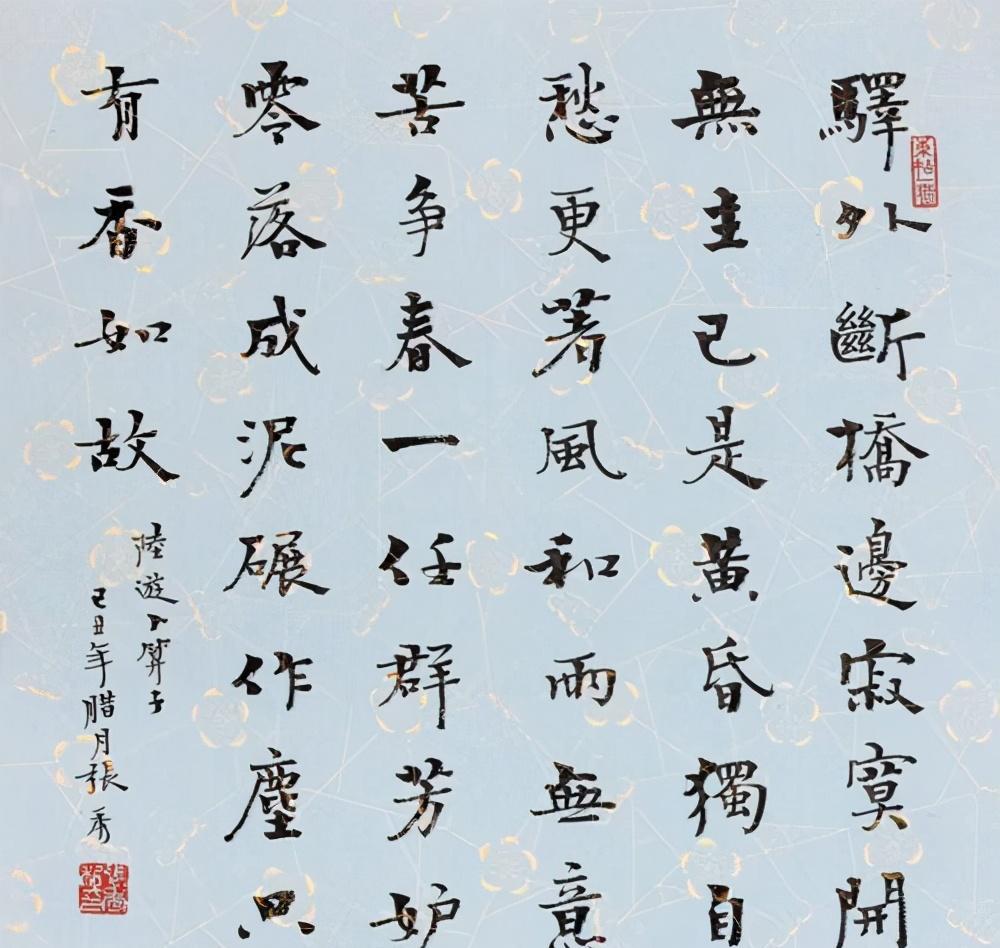 驛外斷橋邊寂寞開
無主已是黄昏獨自
愁更著風和雨無意
苦争春一任群芳妒
零落成泥碾作塵只
有香如故
陸遊卜算子
己丑年腊月張秀